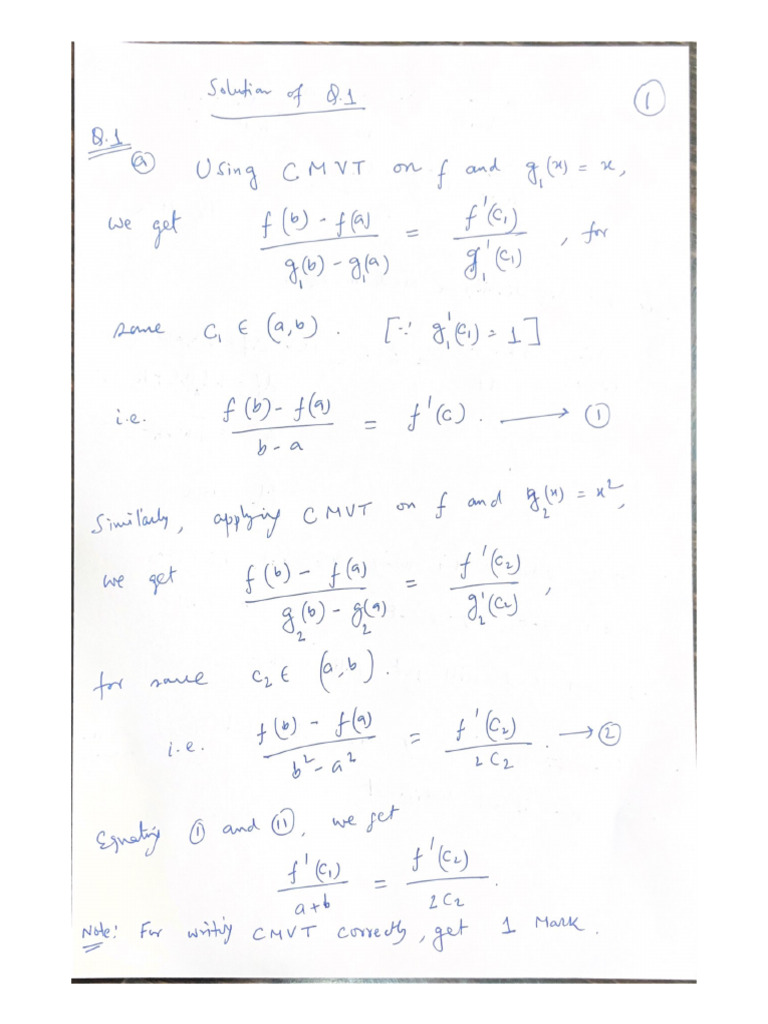 Solution of Q.1
①
Q.1
ⓐ Using CMVT on f and g₁(x) = x,
we get (f(b) - f(a))/(g₁(b) - g₁(a)) = f'(c₁)/g₁'(c₁), for
some c₁ ∈ (a,b). [∵ g₁'(c₁) = 1]
i.e. (f(b) - f(a))/(b - a) = f'(c). ⟶ ①
Similarly, applying CMVT on f and g₂(x) = x²,
we get (f(b) - f(a))/(g₂(b) - g₂(a)) = f'(c₂)/g₂'(c₂),
for some c₂ ∈ (a,b).
i.e. (f(b) - f(a))/(b² - a²) = f'(c₂)/2c₂. ⟶ ②
Equating Ⓘ and ⑪, we get
f'(c₁)/(a+b) = f'(c₂)/2c₂.
Note: For writing CMVT correctly, get 1 Mark.